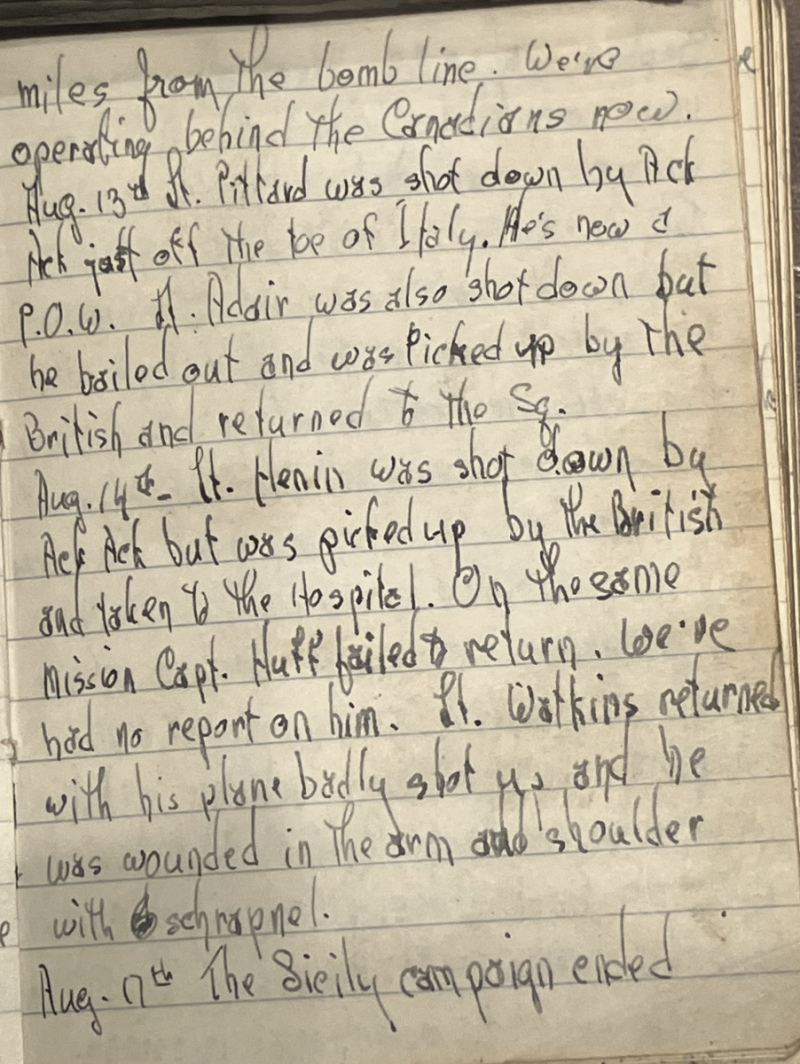 miles from the bomb line. We're
operating behind the Canadians now.
Aug. 13rd Lt. Pittard was shot down by Ack
Ack just off the toe of Italy. He's now a
P.O.W. Lt. Adair was also shot down but
he bailed out and was Picked up by the
British and returned to the Sq.
Aug. 14th- Lt. Henin was shot down by
Ack Ack but was picked up by the British
and taken to the Hospital. On the same
mission Capt. Huff failed to return. We've
had no report on him. Lt. Watkins returned
with his plane badly shot up and he
was wounded in the arm and shoulder
with schrapnel.
Aug. 17th The Sicily campaign ended